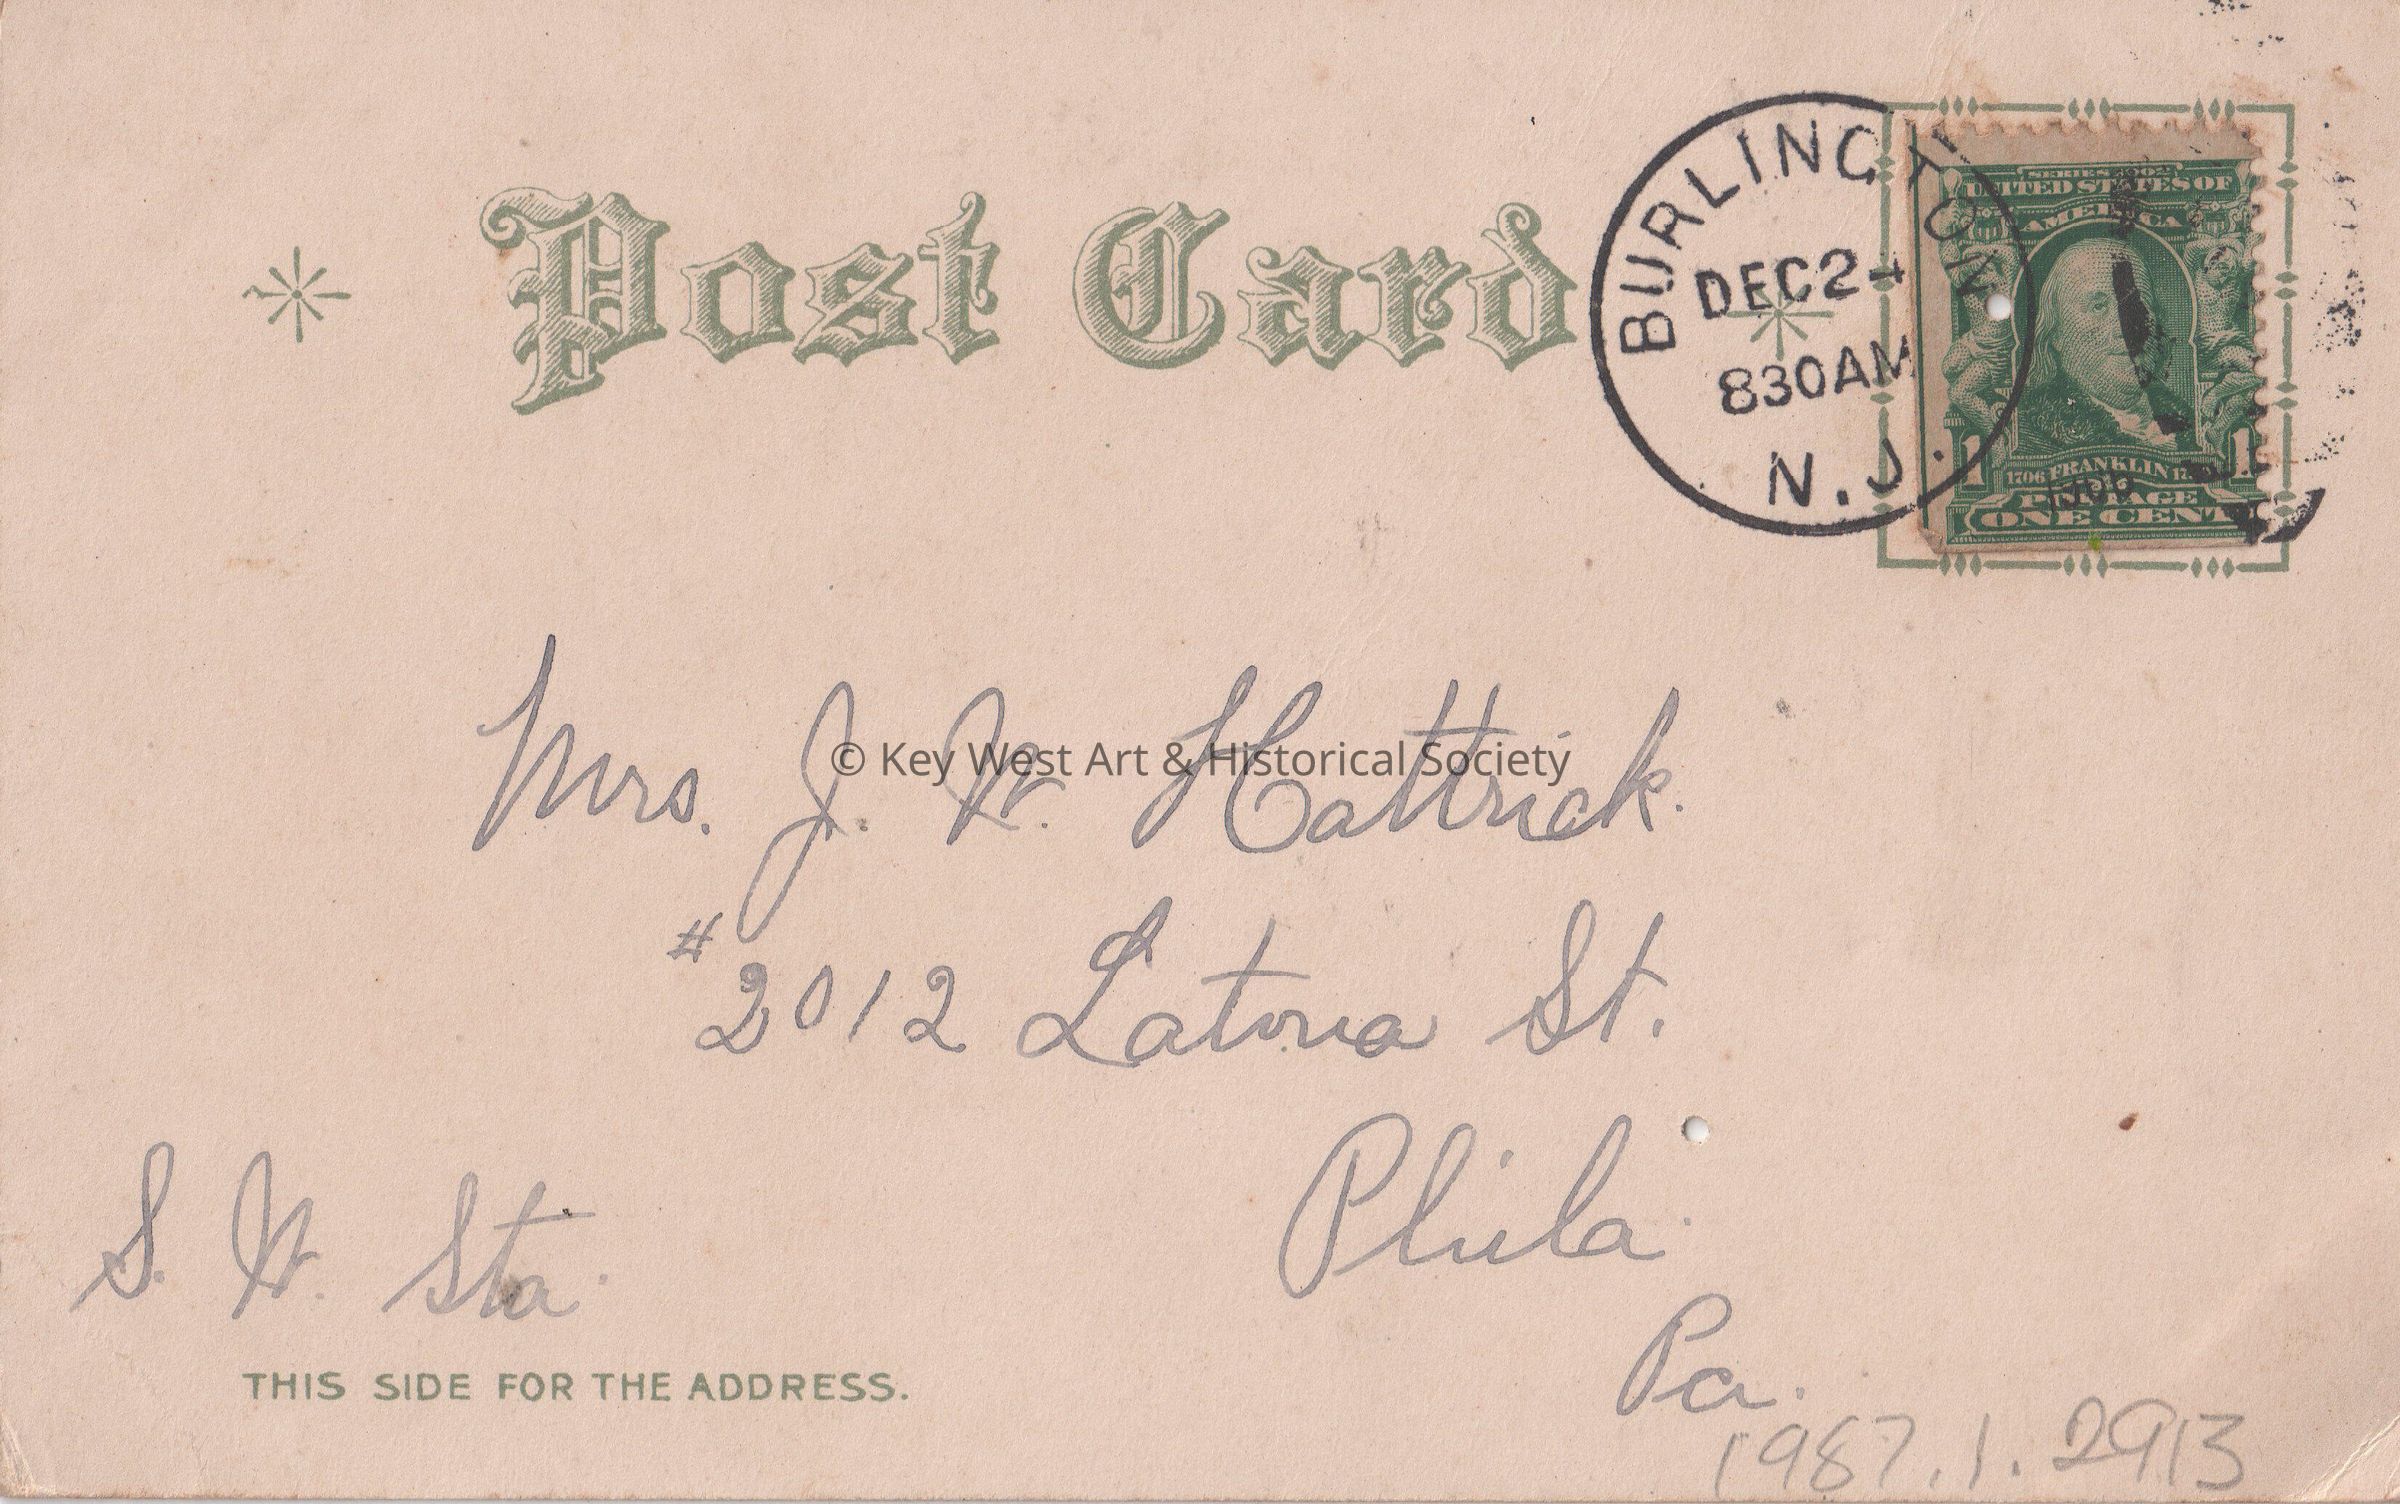 Post Card
BURLINGTON
DEC 24
830AM
N.J.
SERIES 1902
UNITED STATES OF
AMERICA
1706 FRANKLIN
1 1
POSTAGE
ONE CENT
Mrs. J. W. Hattrick.
© Key West Art & Historical Society
# 2012 Latona St.
Phila.
S. W. Sta.
Pa.
THIS SIDE FOR THE ADDRESS.
1987.1.2913